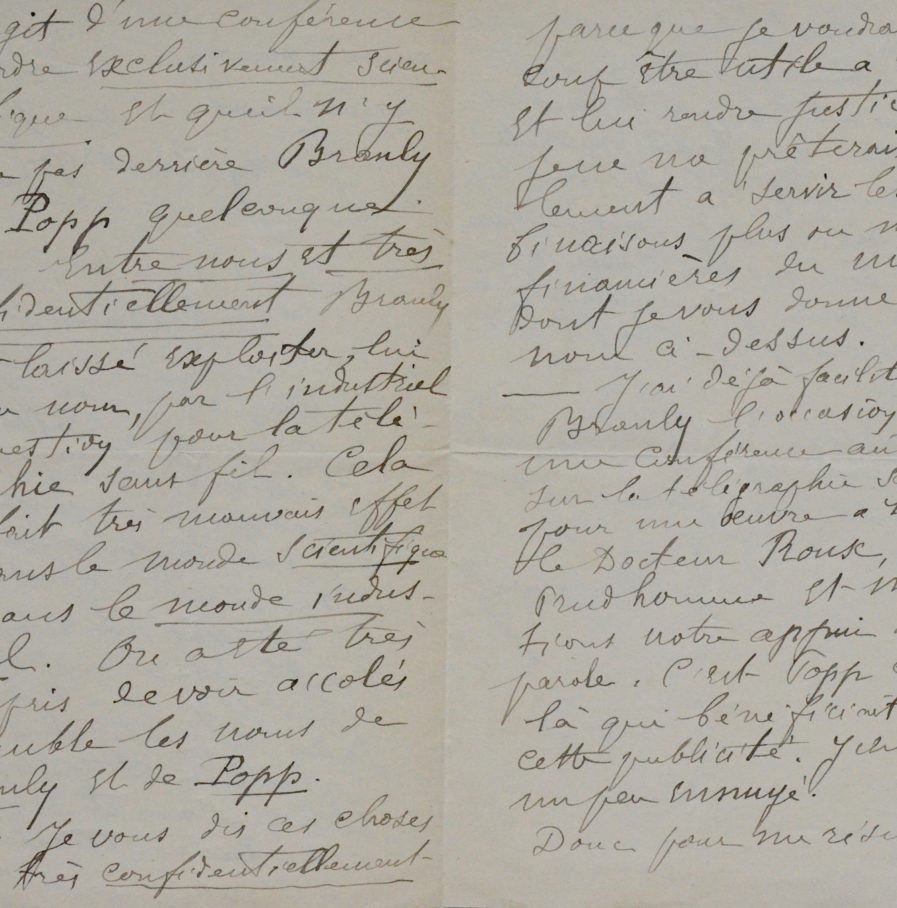 git d'une conférence
rdre exclusivement scien-
ique et qu'il n'y
pas derrière Branly
Popp quelconque.
Entre nous et très
fidentiellement Branly
laissé exploiter, lui
nom, par l'industriel
estion pour la télé-
hie sans fil. Cela
fait très mauvais effet
ans le monde scientifique
ans le monde indus-
l. On a été très
pris de voir accolés
emble les noms de
nly et de Popp.
Je vous dis ces choses
très confidentiellement
parce que je voudra
être utile a
et lui rendre justic
je ne prêterai
lement a servir les
binaisons plus ou m
financières du m
dont je vous donne
nom ci-dessus.
— J'ai déjà facilit
Branly l'occasion
une conférence au
sur la télégraphie s
pour une œuvre a
le Docteur Roux,
Prudhomme et m
tions notre appui
parole. C'est Popp
là qui bénéficiait
cette publicité. J'en
un peu ennuyé.
Donc pour me résu